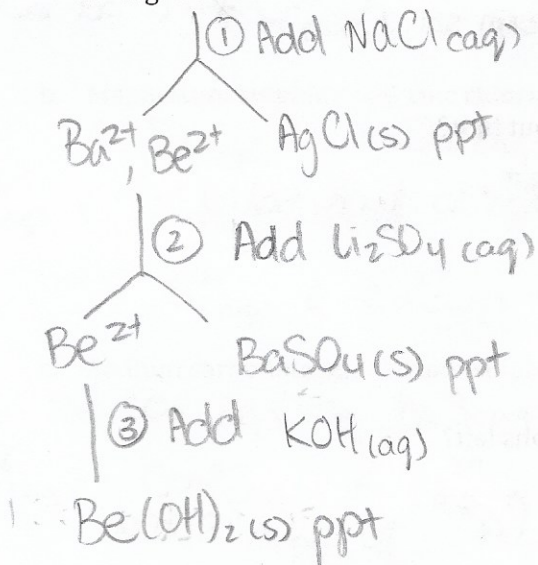 ① Add NaCl(aq)
Ba²⁺, Be²⁺ AgCl(s) ppt
② Add Li₂SO₄(aq)
Be²⁺ BaSO₄(s) ppt
③ Add KOH(aq)
Be(OH)₂(s) ppt